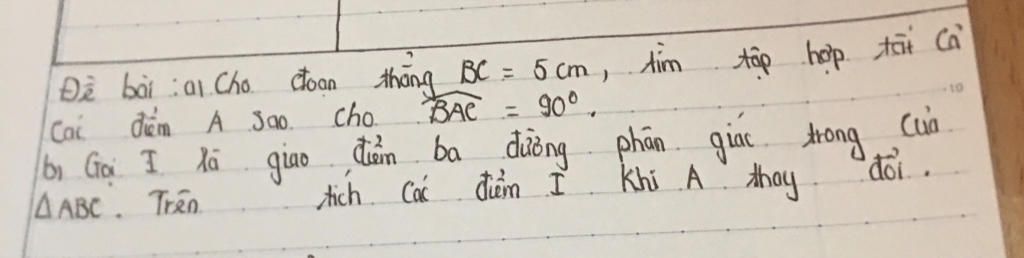 Đề bài : a, Cho đoạn thẳng BC = 5 cm, tìm tập hợp tất cả
các điểm A sao cho \widehat{BAC} = 90°.
b, Gọi I là giao điểm ba đường phân giác trong của
ΔABC. Trên tích các điểm I khi A thay đổi.